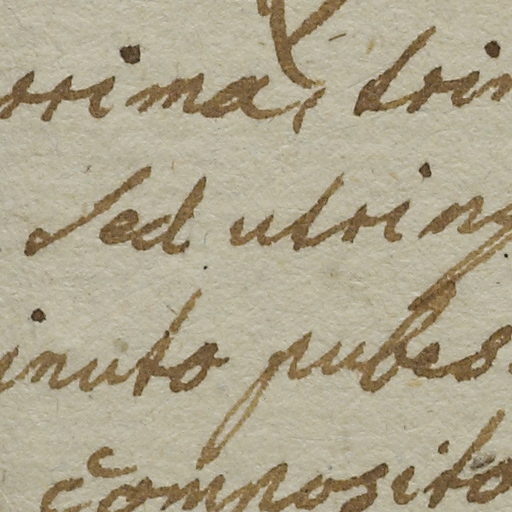 rrima, trin
Sed utring
inuto pubes
composito